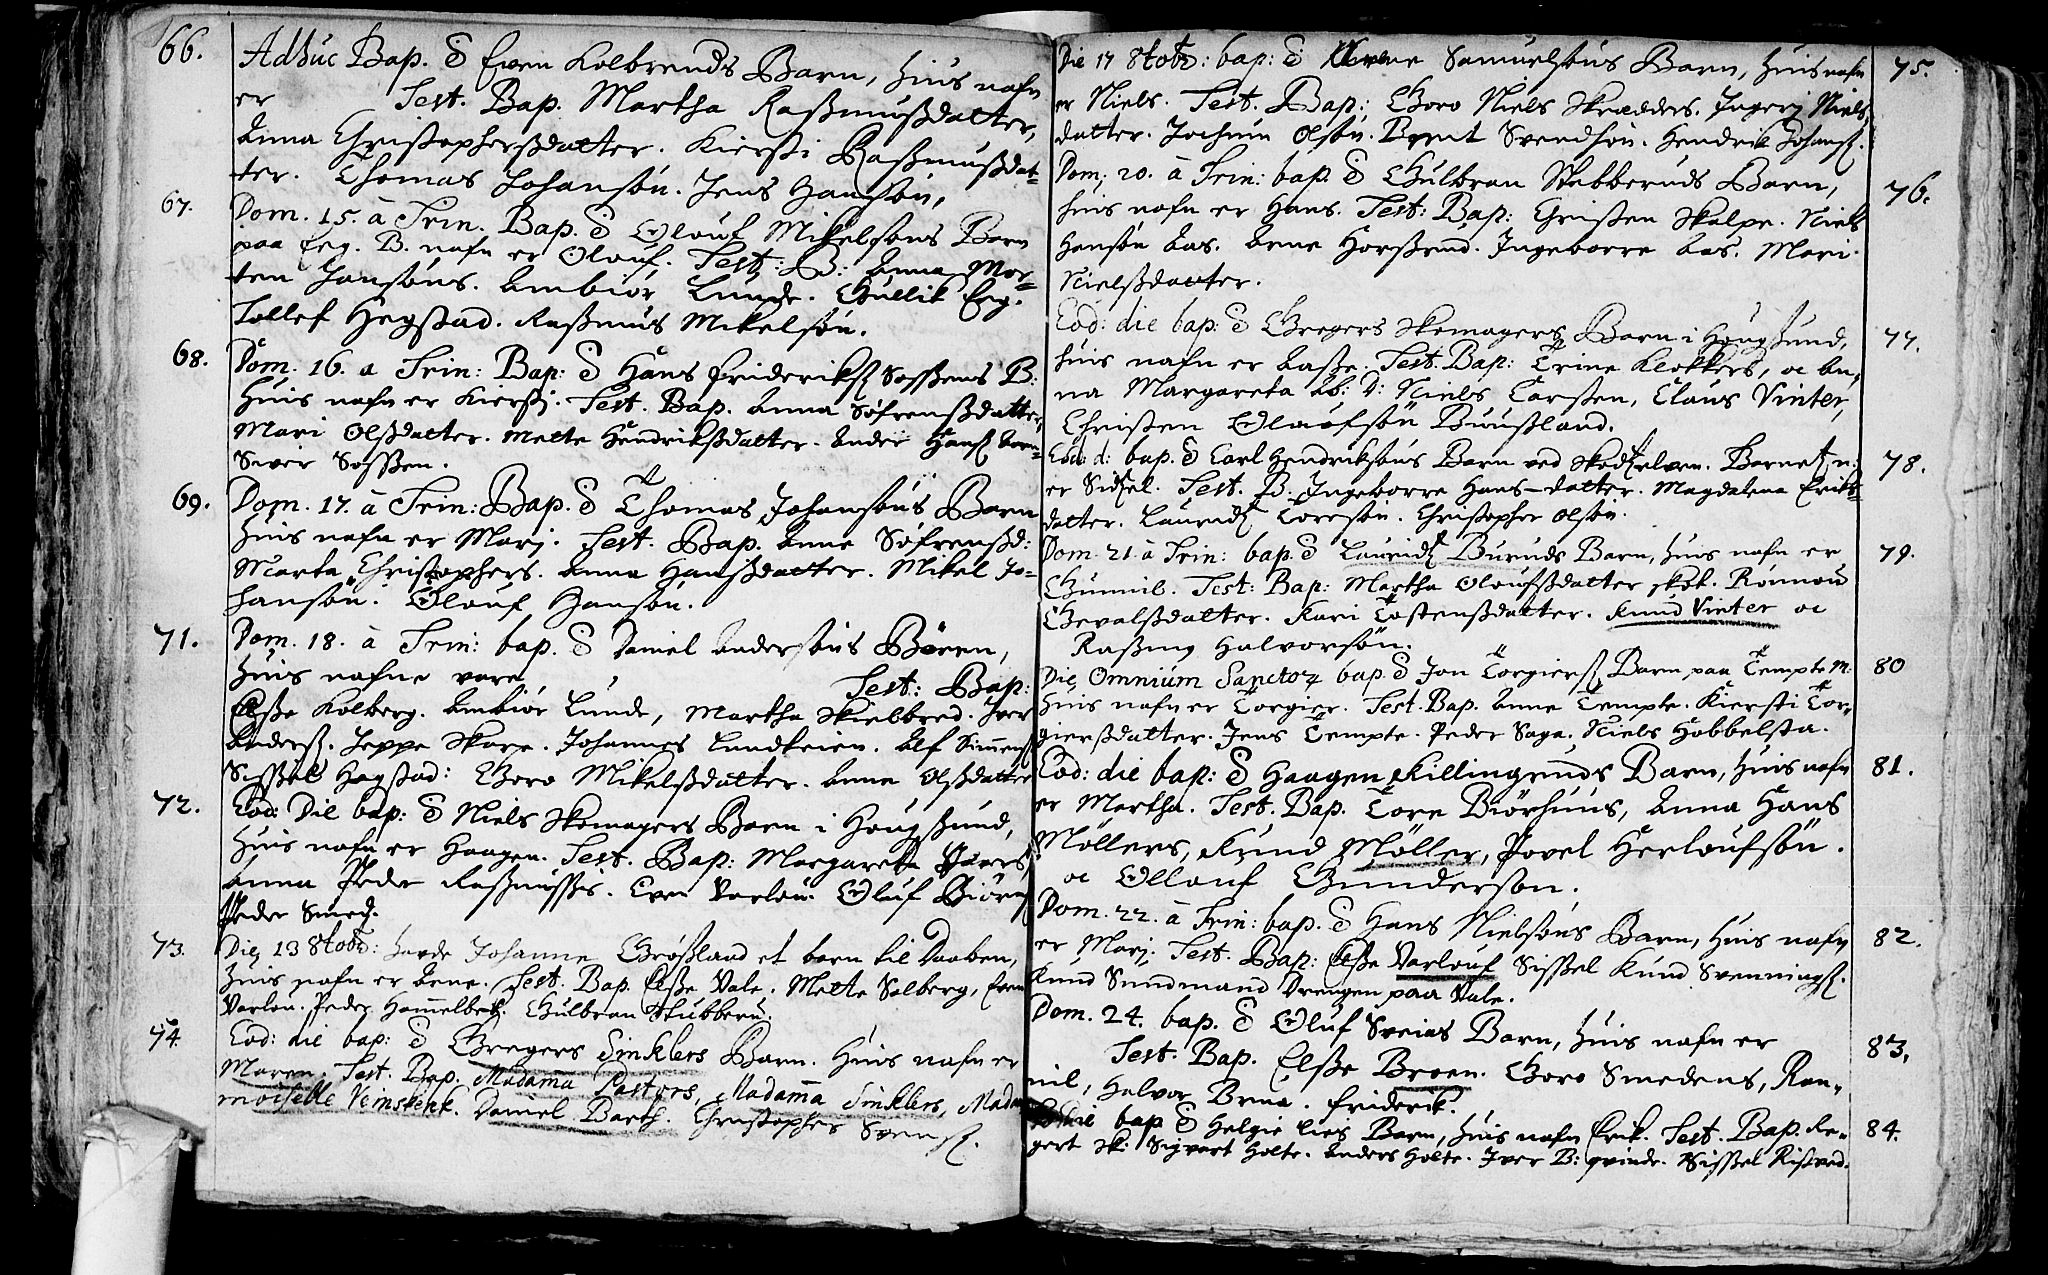 66. Adhuc Bap. Even Kolbrends Barn, huis nafn
er Test. Bap. Martha Raßmußdatter,
Anna Christophersdatter. Kiersti Raßmußdat=
ter. Thomas Johansøn. Jens Hansøn,
67. Dom. 15. à Trin. Bap. Olouf Mikelsøns Barn
paa Eeg. B. nafn er Olouf. Test: B: Anna Mor=
ten Jonsøns. Ambiør Lunde. Gullik Eeg.
Tollef Hegstad. Raßmus Mikelsøn.
68. Dom. 16. a Trin: Bap: Hans Frideriks Soßens B:
Huis nafn er Kiersti. Test. Bap. Anna Søfrensdatter,
Mari Olsdatter. Mette Hendriksdatter. Ander Hans
Siver Soßen.
69. Dom. 17. à Trin: Bap. Thomas Johansøns Barn
Huis nafn er Marj. Test. Bap. Anne Søfrensd:
Marta Christophers. Anna Hansdatter. Mikel Jo=
hansøn. Olouf Hansøn.
71. Dom. 18. à Trin: bap. Daniel Andersøns Børn,
Huis nafne vare Test: Bap:
Elße Kolberg. Ambiør Lunde, Martha Skielbred. Iver
Anders. Jeppe Skore. Johannes Landkeien. Alf Simens
Sißel Hagstad: Goro Mikelsdatter. Anne Olsdatter
72. Eod: Die bap: Niels Skomagers Barn i Hougsund,
Huis nafn er Haagen. Test. Bap: Margareta
Anna Peder Raßmußes. Even Varlou. Oluf Biørns
Peder Smed.
73. Die 13 8tobr: hafde Johanne Grøsland et barn til Daaben,
Huis nafn er Anne. Test. Bap. Elße Vale. Mette Solberg, Even
Varlou. Peder Hammelbek. Gulbran Stubberu.
74. Eod: die bap: Gregers Sinklers Barn. Huis nafn er
Maren. Test. Bap. Madama Pastors, Madama Sinklers, Mada
moiselle Vemskenk. Daniel Barth. Christopher Svens.
Die 17 8tobr: bap: Samuelsøns Barn, huis nafn 75.
er Niels. Test. Bap: Goro Niels Skrædders. Ingerj Niels
datter. Jochum Olsøn. Bernt Svendsøn. Hendrik Johans.
Dom: 20. à Trin: bap. Gulbran Stubberuds Barn, 76.
huis nafn er Hans. Test: Bap: Christen Skalpe. Niels
Hansøn Aas. Anne Horsrud. Ingeborre Aas. Mari
Nielsdatter.
Eod: die bap: Gregers Skomagers Barn i Hougsund, 77.
huis nafn er Aaße. Test. Bap: Trine Klokkers, oc An,
na Margareta Ab: D: Niels Carsten, Claus Vinter,
Christen Olaufsøn Buusland.
Eod: d: bap. Carl Hendriksøns Barn ved Skotselven. Barnets n: 78.
er Sidsel. Test. B. Ingeborre Hans-datter. Magdalena Eriks=
datter. Laurids Toresøn. Christopher Olsøn.
Dom. 21. à Trin: bap. Laurids Buruds Barn, huis nafn er 79.
Gunnil. Test: Bap: Martha Oloufsdatter skot. Rønnou
Gevalsdatter. Kari Tostensdatter. Knud Vinter oc
Raßmus Halvorsøn.
Die Omnium Sanctor bap. Jon Torgiers Barn paa Tempte M: 80
Huis nafn er Torgier. Test. Bap. Anne Tempte. Kiersti Tor=
giersdatter. Jens Tempte. Peder Saga. Niels Hobbelsta.
Eod: die bap: Haagen Killingruds Barn, huis nafn 81.
er Martha. Test. Bap. Tore Biørhuus, Anna Hans
Møllers, Knud Møller, Povel Herloufsøn.
oc Ollouf Gundersøn.
Dom. 22. à Trin: bap. Hans Nielsøns Barn, Huis nafn 82.
er Marj. Test. Bap: Elße Varlouf Sißel Knud Svennings.
Knud Sundmand Drengen paa Vale.
Dom. 24. bap. Oluf Sveias Barn, huis nafn er 83.
Test. Bap. Elße Broen. Goro Smedens, Ron=
nil, Halvor Brua. Friderik.
die bap Helgie Lies Barn, huis nafn Erik. Test. Bap. Re= 84.
gert Sk: Sigvart Holte. Anders Holte. Iver B: qvinde. Sißel Ristved.